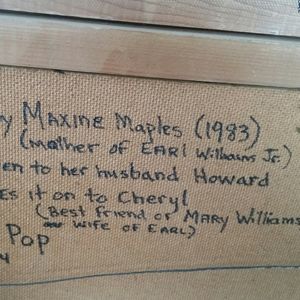 y MAXINE Maples (1983)
(mother of EARl Williams Jr.)
en to her husband Howard
ES it on to Cheryl
(Best friend of MARY Williams
wife of EARL)
Pop